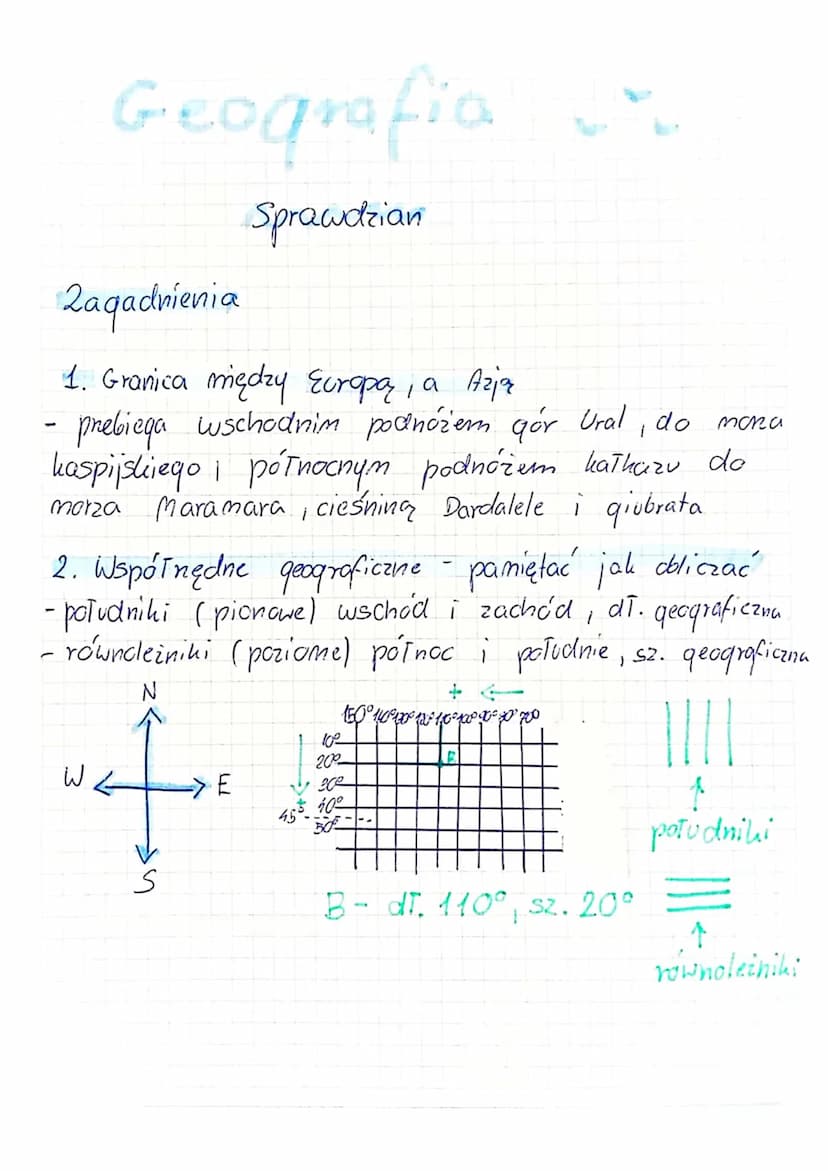 Geografia
Sprawdzian
Zagadnienia
1. Granica między Europą, a Azją
- przebiega wschodnim podnóżem gór Ural, do morza
kaspijskiego i północnym podnóżem kałkazu do
morza Maramara, cieśniną Dardalele i giubrata
2. Współrzędne geograficzne - pamiętać jak obliczać
- południki (pionowe) wschód i zachód, dł. geograficzna
- równoleżniki (poziome) północ i południe, sz. geograficzna
N
W
E
S
+ ←
150° 140° 130° 120° 110° 100° 90° 80° 70°
10°
20°
B
30°
+
40°
45°
50°
południki
B - dł. 110°, sz. 20°
równoleżniki